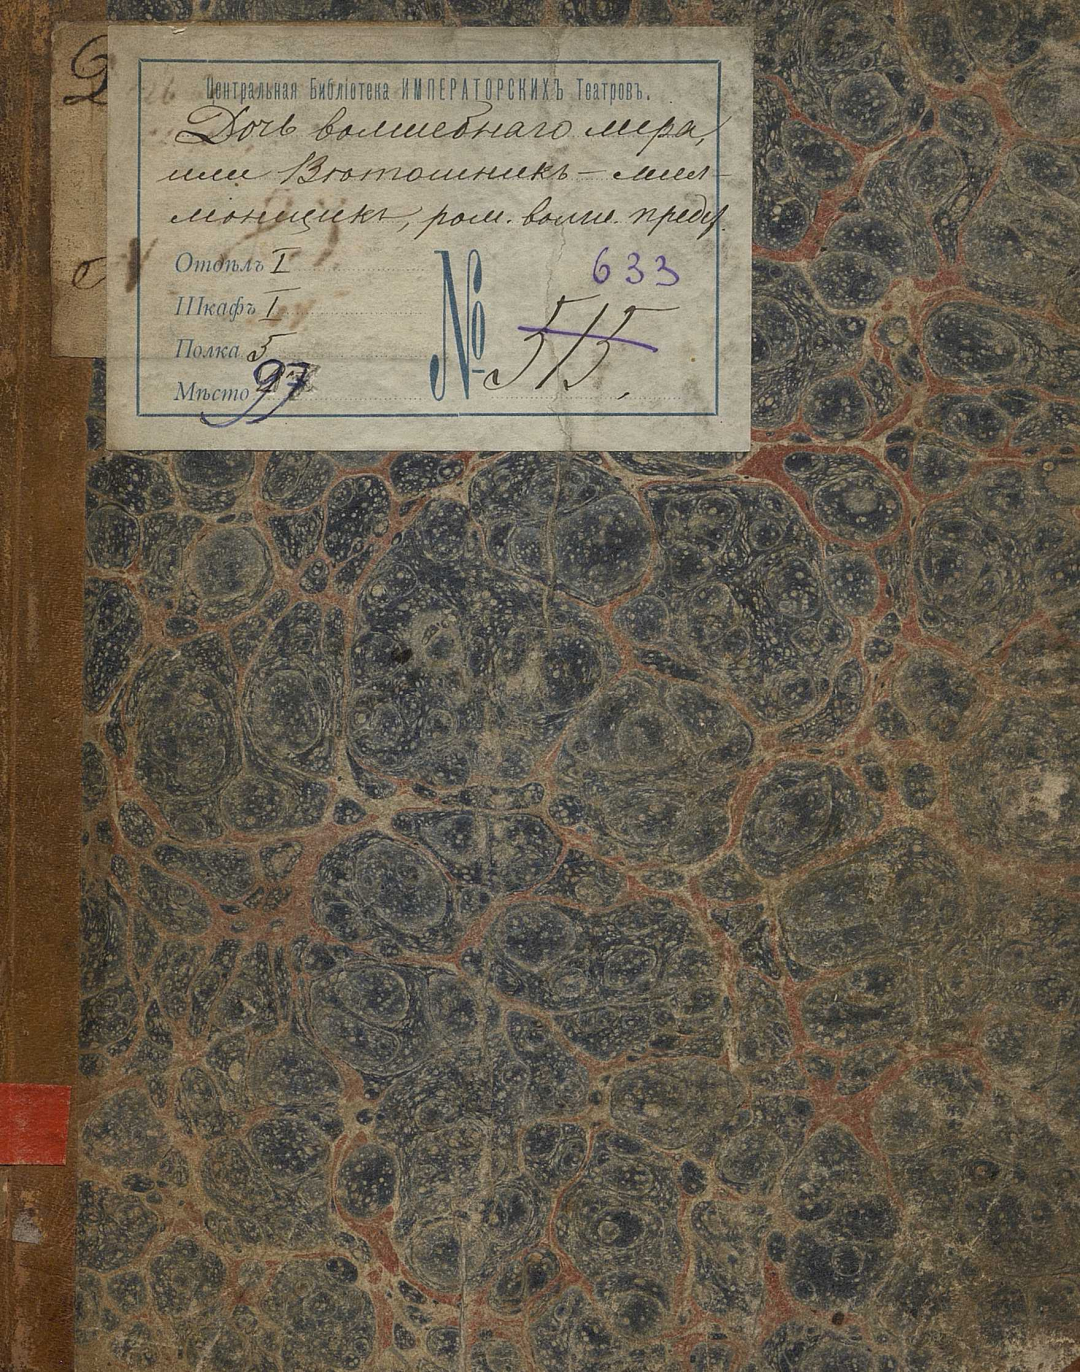 Центральная Библіотека ИМПЕРАТОРСКИХЪ Театровъ.
Дочь волшебнаго мира,
или Вѣтошникъ – мил-
лонщикъ, ром. волш. предс.
Отдѣлъ I
Шкафъ I
Полка 5
Мѣсто 97
№ 515
633